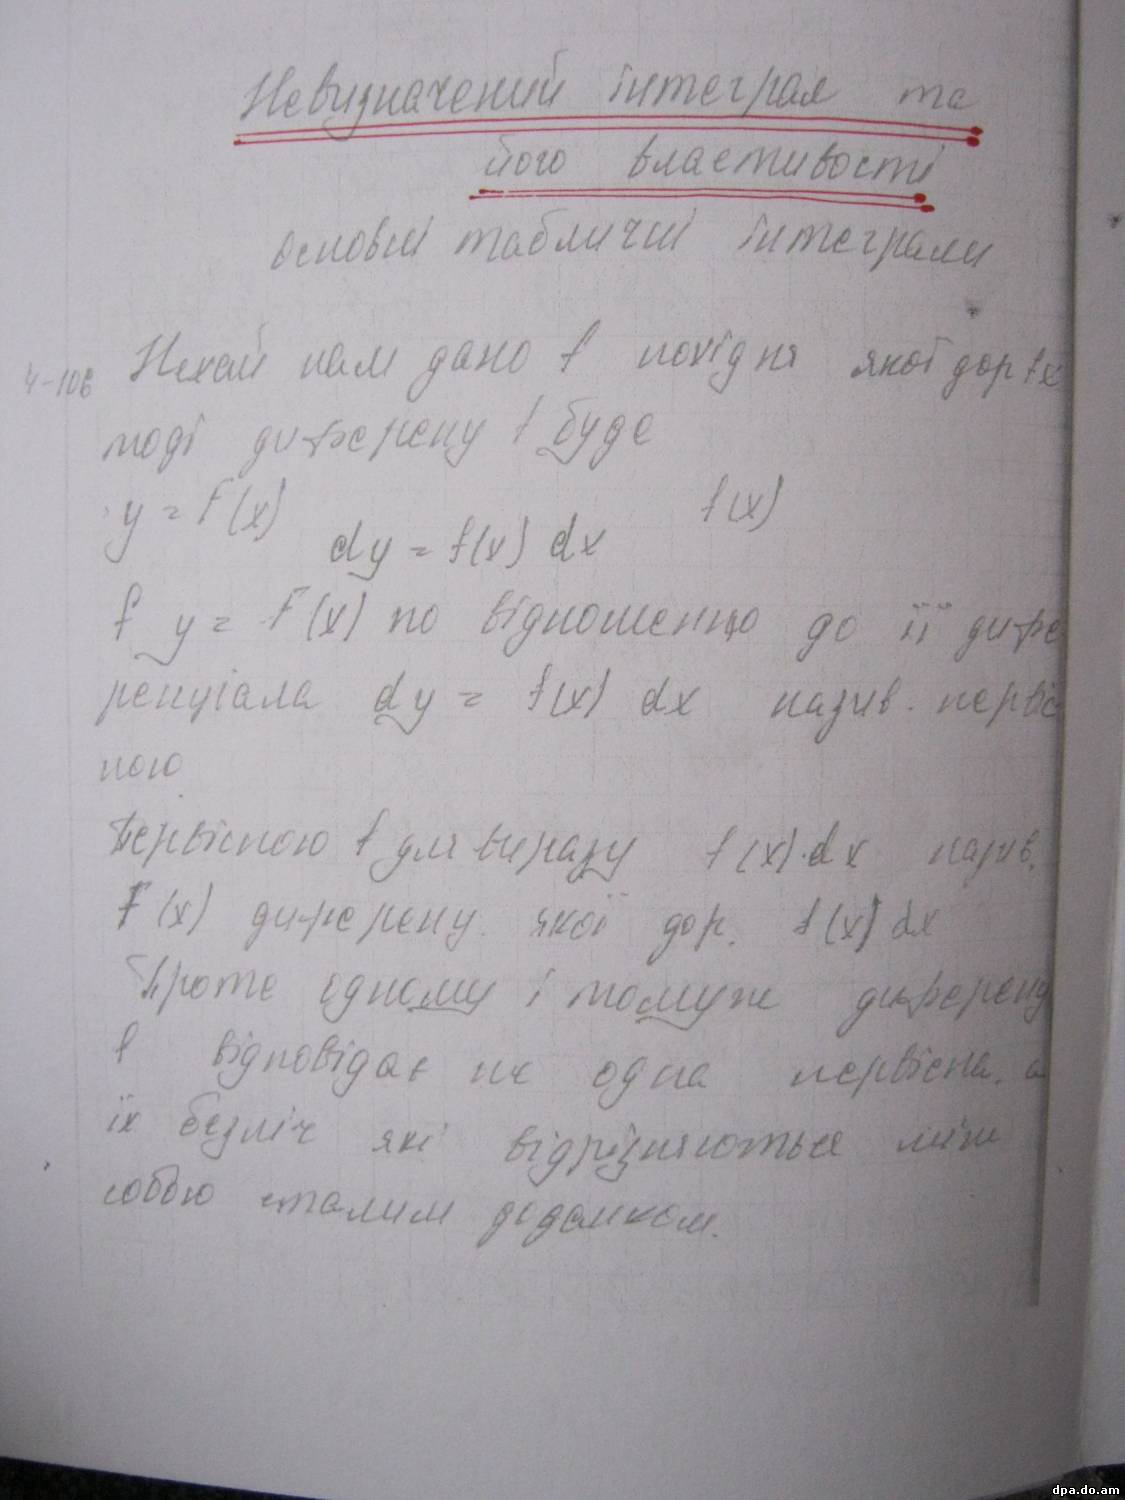 Невизначений інтеграл та
його властивості
основні табличні інтеграли
Нехай нам дано f похідня якої дор fx
тоді диференц f буде
y = F(x)
f(x)
dy = f(x) dx
f y = F(x) по відношенню до її дифе
ренціала dy = f(x) dx назив. первіс
ною
Первісною f для виразу f(x)·dx назив.
F(x) диференц. якої дор. f(x) dx
Проте одному і томуж диференц
f відповідає не одна первісна, а
їх безліч які відрізняються між
собою сталим доданком.
dpa.do.am